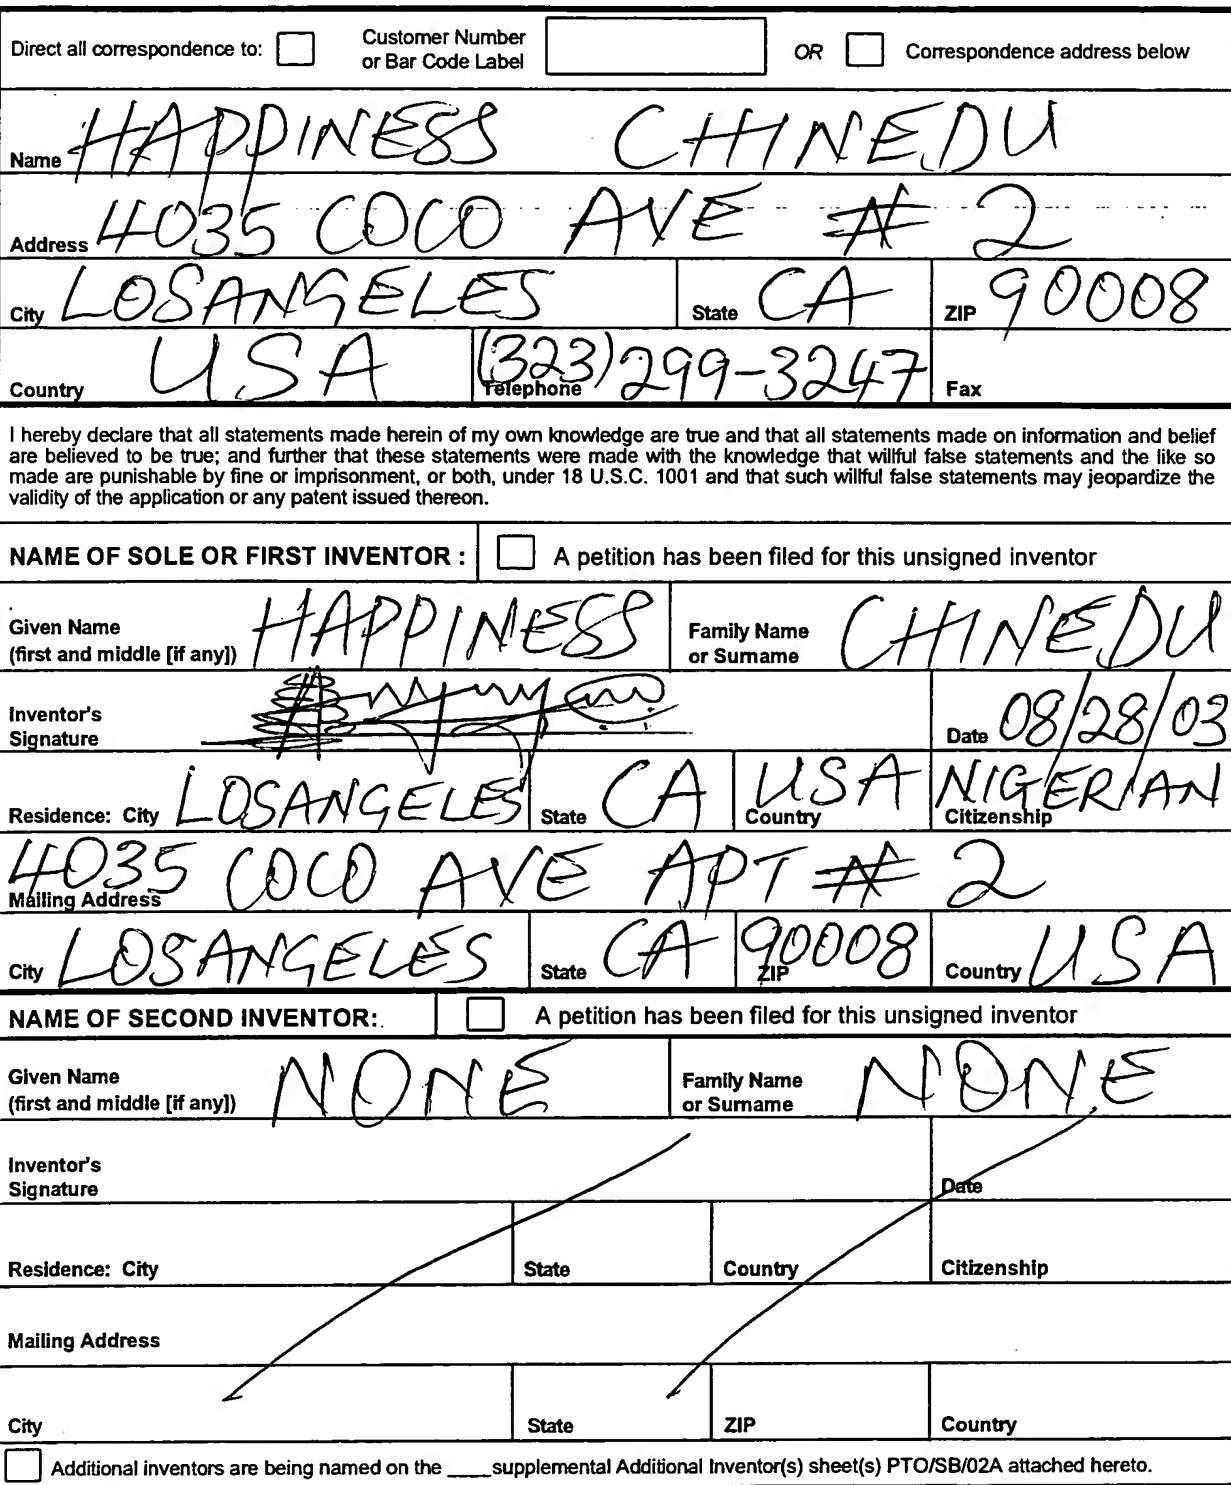 Direct all correspondence to: Customer Number or Bar Code Label OR Correspondence address below
Name HAPPINESS CHINEDU
Address 4035 COCO AVE # 2
City LOSANGELES State CA ZIP 90008
Country USA Telephone (323) 299-3247 Fax
I hereby declare that all statements made herein of my own knowledge are true and that all statements made on information and belief
are believed to be true; and further that these statements were made with the knowledge that willful false statements and the like so
made are punishable by fine or imprisonment, or both, under 18 U.S.C. 1001 and that such willful false statements may jeopardize the
validity of the application or any patent issued thereon.
NAME OF SOLE OR FIRST INVENTOR : A petition has been filed for this unsigned inventor
Given Name (first and middle [if any]) HAPPINESS Family Name or Surname CHINEDU
Inventor's Signature Date 08/28/03
Residence: City LOSANGELES State CA Country USA Citizenship NIGERIAN
Mailing Address 4035 COCO AVE APT # 2
City LOSANGELES State CA ZIP 90008 Country USA
NAME OF SECOND INVENTOR: A petition has been filed for this unsigned inventor
Given Name (first and middle [if any]) NONE Family Name or Surname NONE
Inventor's Signature Date
Residence: City State Country Citizenship
Mailing Address
City State ZIP Country
Additional inventors are being named on the ____ supplemental Additional Inventor(s) sheet(s) PTO/SB/02A attached hereto.